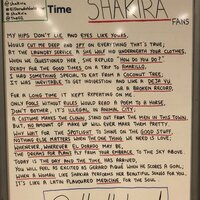 Time
SHAKIRA
FANS
MY HIPS DON'T LIE AND EYES LIKE YOURS
WOULD CUT ME DEEP AND SPY ON EVERYTHING THAT'S TRUE;
AT THE LAUNDRY SERVICE A SHE WOLF NO UNDERNEATH YOUR CLOTHES.
WHEN WE QUESTIONED HER, SHE REPLIED "HOW DO YOU DO?"
READY FOR THE GOOD TIMES ON A TRIP TO AMARILLO,
I HAD SOMETHING SPECIAL TO EAT FROM A COCONUT TREE.
IT WAS INEVITABLE TO GET INDIGESTION AND LIKE A DEJA VU
OR A BROKEN RECORD,
FOR A LONG TIME IT KEPT REPEATING ON ME.
ONLY FOOLS WITHOUT RULES WOULD READ A POEM TO A HORSE,
DON'T BOTHER, IT'S ILLEGAL IN ANIMAL CITY.
A COSTUME MAKES THE CLOWN, STAND OUT FROM THE MEN IN THIS TOWN,
BUT NO AMOUNT OF MAKE UP WILL EVER MAKE THEM PRETTY.
WHY WAIT FOR THE SPOTLIGHT TO SHINE ON THE GOOD STUFF,
NOTHING ELSE MATTERS WHEN THE ONE THING WE NEED IS LOVE.
WHENEVER, WHEREVER EL DORADO MAY BE,
THE DREAMS FOR PLANS PUT FROM YOUR EMBRACE TO THE SKY ABOVE.
TODAY IS THE DAY AND THE TIME HAS ARRIVED,
YOU WILL FEEL AS EXCITED AS GERARD PIQUE WHEN HE SCORES A GOAL,
WHEN A WOMAN LIKE SHAKIRA PERFORMS HER BEAUTIFUL SONGS FOR YOU,
IT'S LIKE A LATIN FLAVOURED MEDICINE FOR THE SOUL.